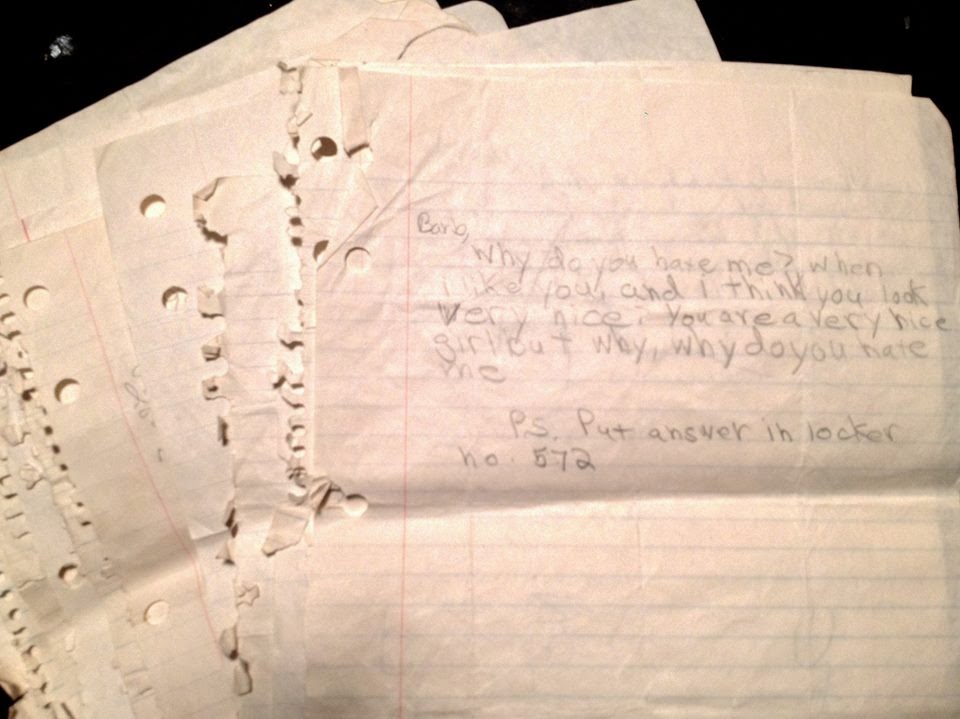 Barb,
Why do you hate me? when
i like you, and I think you look
very nice? You are a very nice
girl but why, why do you hate
me
PS. Put answer in locker
no. 572